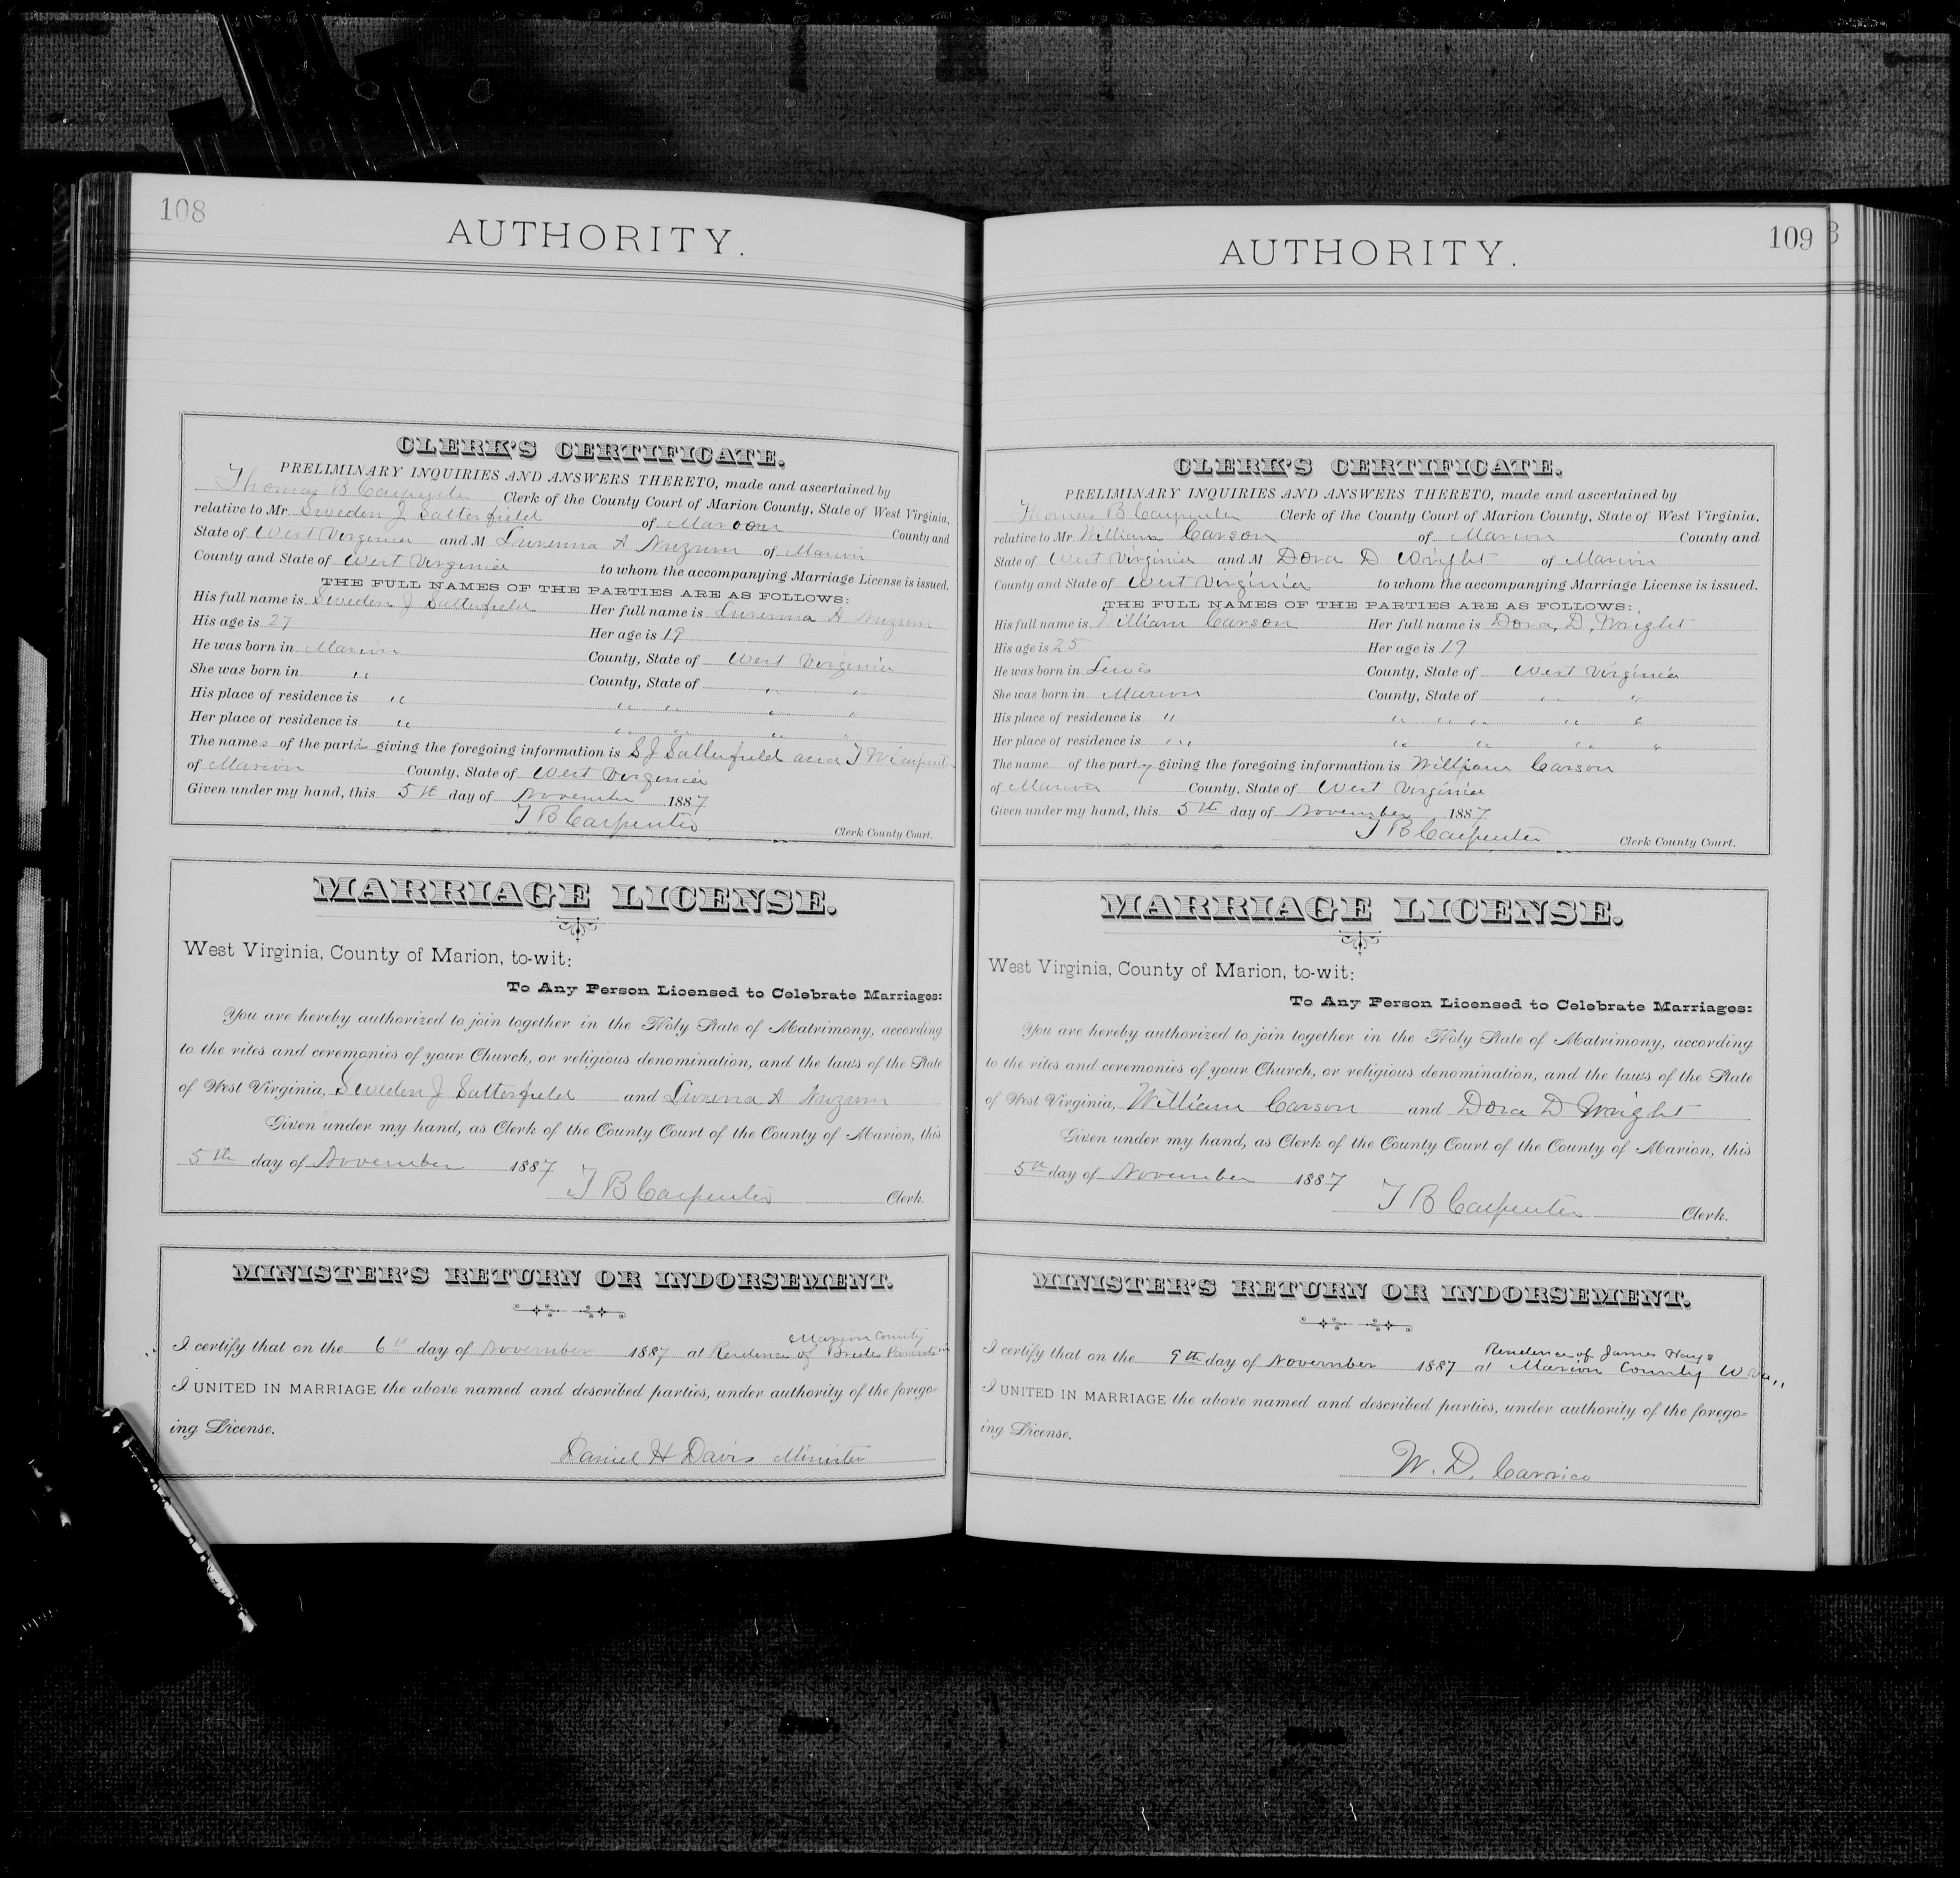 108
AUTHORITY.
CLERK'S CERTIFICATE.
PRELIMINARY INQUIRIES AND ANSWERS THERETO, made and ascertained by
Thomas B Carpenter Clerk of the County Court of Marion County, State of West Virginia,
relative to Mr. Sweden J Satterfield of Marion County and
State of West Virginia and M Lurenna A Nuzum of Marion
County and State of West Virginia to whom the accompanying Marriage License is issued.
THE FULL NAMES OF THE PARTIES ARE AS FOLLOWS:
His full name is Sweden J Satterfield Her full name is Lurenna A Nuzum
His age is 27 Her age is 19
He was born in Marion County, State of West Virginia
She was born in " County, State of " "
His place of residence is " " " " "
Her place of residence is " " " " "
The names of the parties giving the foregoing information is S J Satterfield and T W Carpenter
of Marion County, State of West Virginia
Given under my hand, this 5th day of November 1887
T B Carpenter Clerk County Court.
MARRIAGE LICENSE.
West Virginia, County of Marion, to-wit:
To Any Person Licensed to Celebrate Marriages:
You are hereby authorized to join together in the Holy State of Matrimony, according
to the rites and ceremonies of your Church, or religious denomination, and the laws of the State
of West Virginia, Sweden J Satterfield and Lurenna A Nuzum
Given under my hand, as Clerk of the County Court of the County of Marion, this
5th day of November 1887 T B Carpenter Clerk.
MINISTER'S RETURN OR INDORSEMENT.
Marion County
I certify that on the 6th day of November 1887 at Residence of Brides Parents in
I UNITED IN MARRIAGE the above named and described parties, under authority of the forego-
ing License.
Daniel H Davis Minister
109
AUTHORITY.
CLERK'S CERTIFICATE.
PRELIMINARY INQUIRIES AND ANSWERS THERETO, made and ascertained by
Thomas B Carpenter Clerk of the County Court of Marion County, State of West Virginia,
relative to Mr. William Carson of Marion County and
State of West Virginia and M Dora D Wright of Marion
County and State of West Virginia to whom the accompanying Marriage License is issued.
THE FULL NAMES OF THE PARTIES ARE AS FOLLOWS:
His full name is William Carson Her full name is Dora, D, Wright
His age is 25 Her age is 19
He was born in Lewis County, State of West Virginia
She was born in Marion County, State of " "
His place of residence is " " " " " "
Her place of residence is " " " " "
The name of the party giving the foregoing information is William Carson
of Marion County, State of West Virginia
Given under my hand, this 5th day of November 1887
T B Carpenter Clerk County Court.
MARRIAGE LICENSE.
West Virginia, County of Marion, to-wit:
To Any Person Licensed to Celebrate Marriages:
You are hereby authorized to join together in the Holy State of Matrimony, according
to the rites and ceremonies of your Church, or religious denomination, and the laws of the State
of West Virginia, William Carson and Dora D Wright
Given under my hand, as Clerk of the County Court of the County of Marion, this
5th day of November 1887 T B Carpenter Clerk.
MINISTER'S RETURN OR INDORSEMENT.
Residence of James Hays
I certify that on the 9th day of November 1887 at Marion County W Va,,
I UNITED IN MARRIAGE the above named and described parties, under authority of the forego-
ing License.
W. D. Carrico